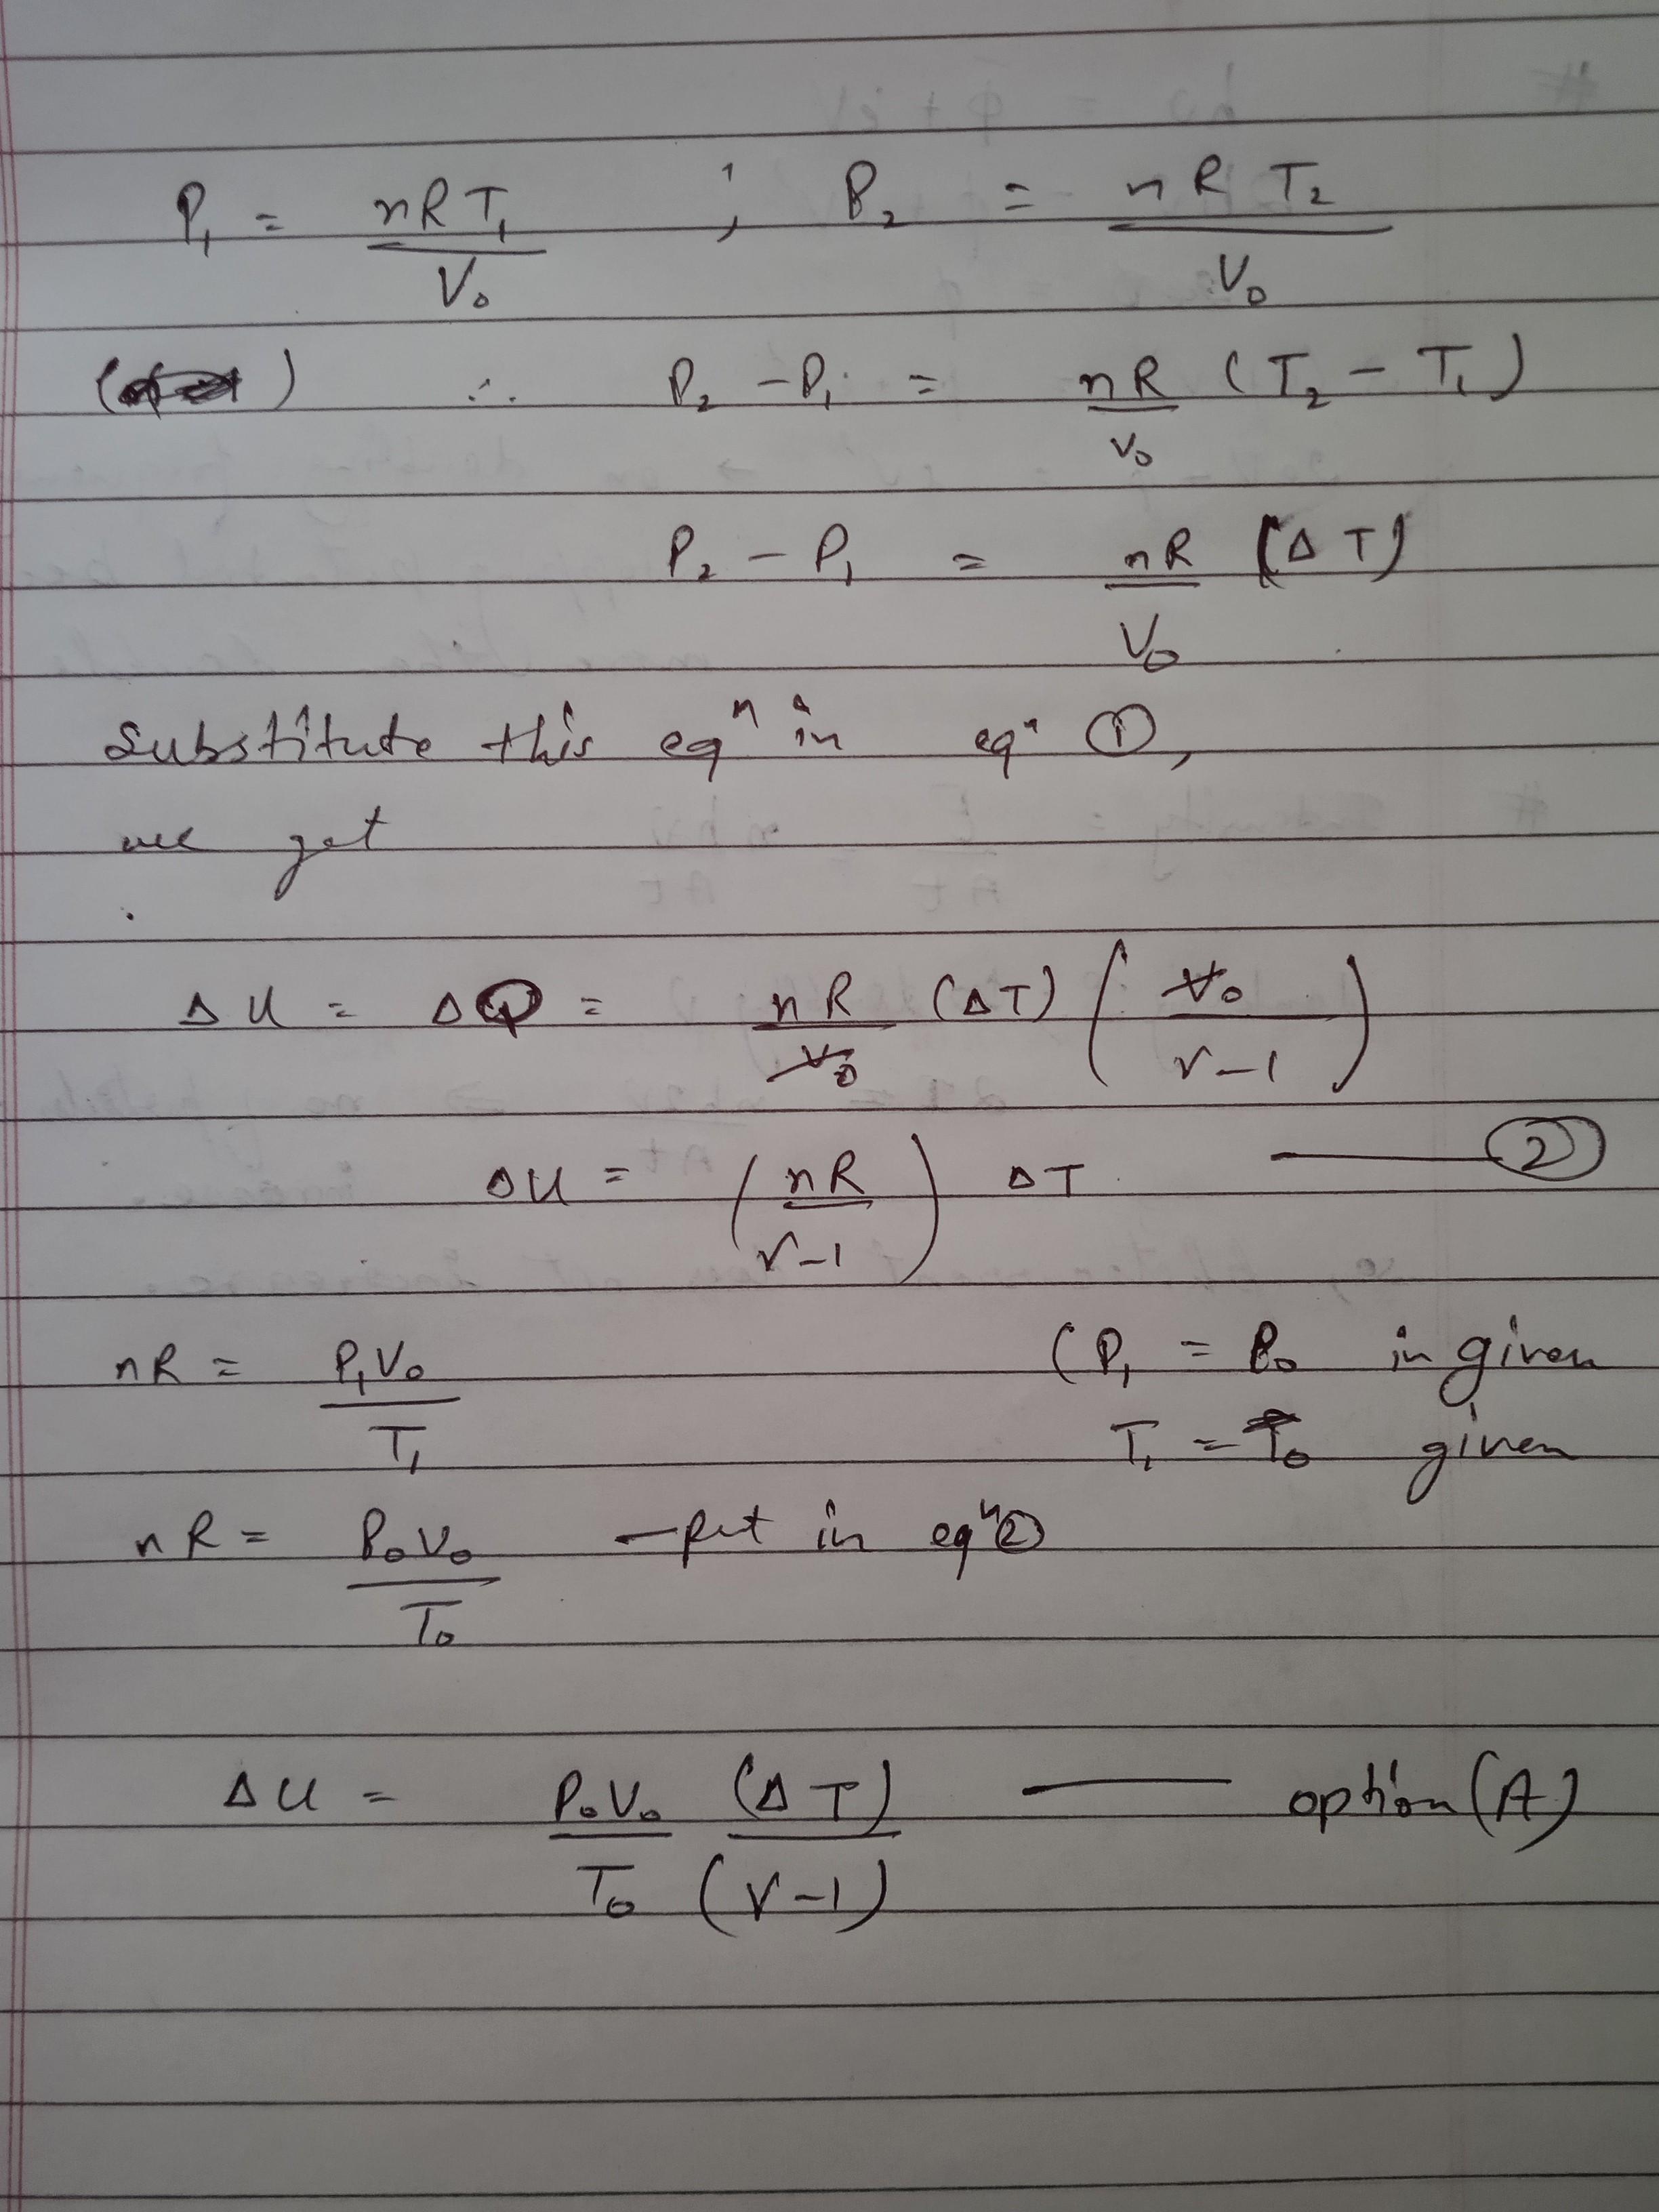 P₁ = nRT₁ / V₀ ; P₂ = nRT₂ / V₀
∴ P₂ - P₁ = nR / V₀ (T₂ - T₁)
P₂ - P₁ = nR / V₀ (ΔT)
Substitute this eqⁿ in eqⁿ ①,
we get
ΔU = ΔQ = nR / V₀ (ΔT) (V₀ / γ-1)
ΔU = (nR / γ-1) ΔT — ②
nR = P₁V₀ / T₁ (P₁ = P₀ in given
T₁ = T₀ given
nR = P₀V₀ / T₀ - put in eqⁿ ②
ΔU = P₀V₀ / T₀ (ΔT) / (γ-1) — option (A)